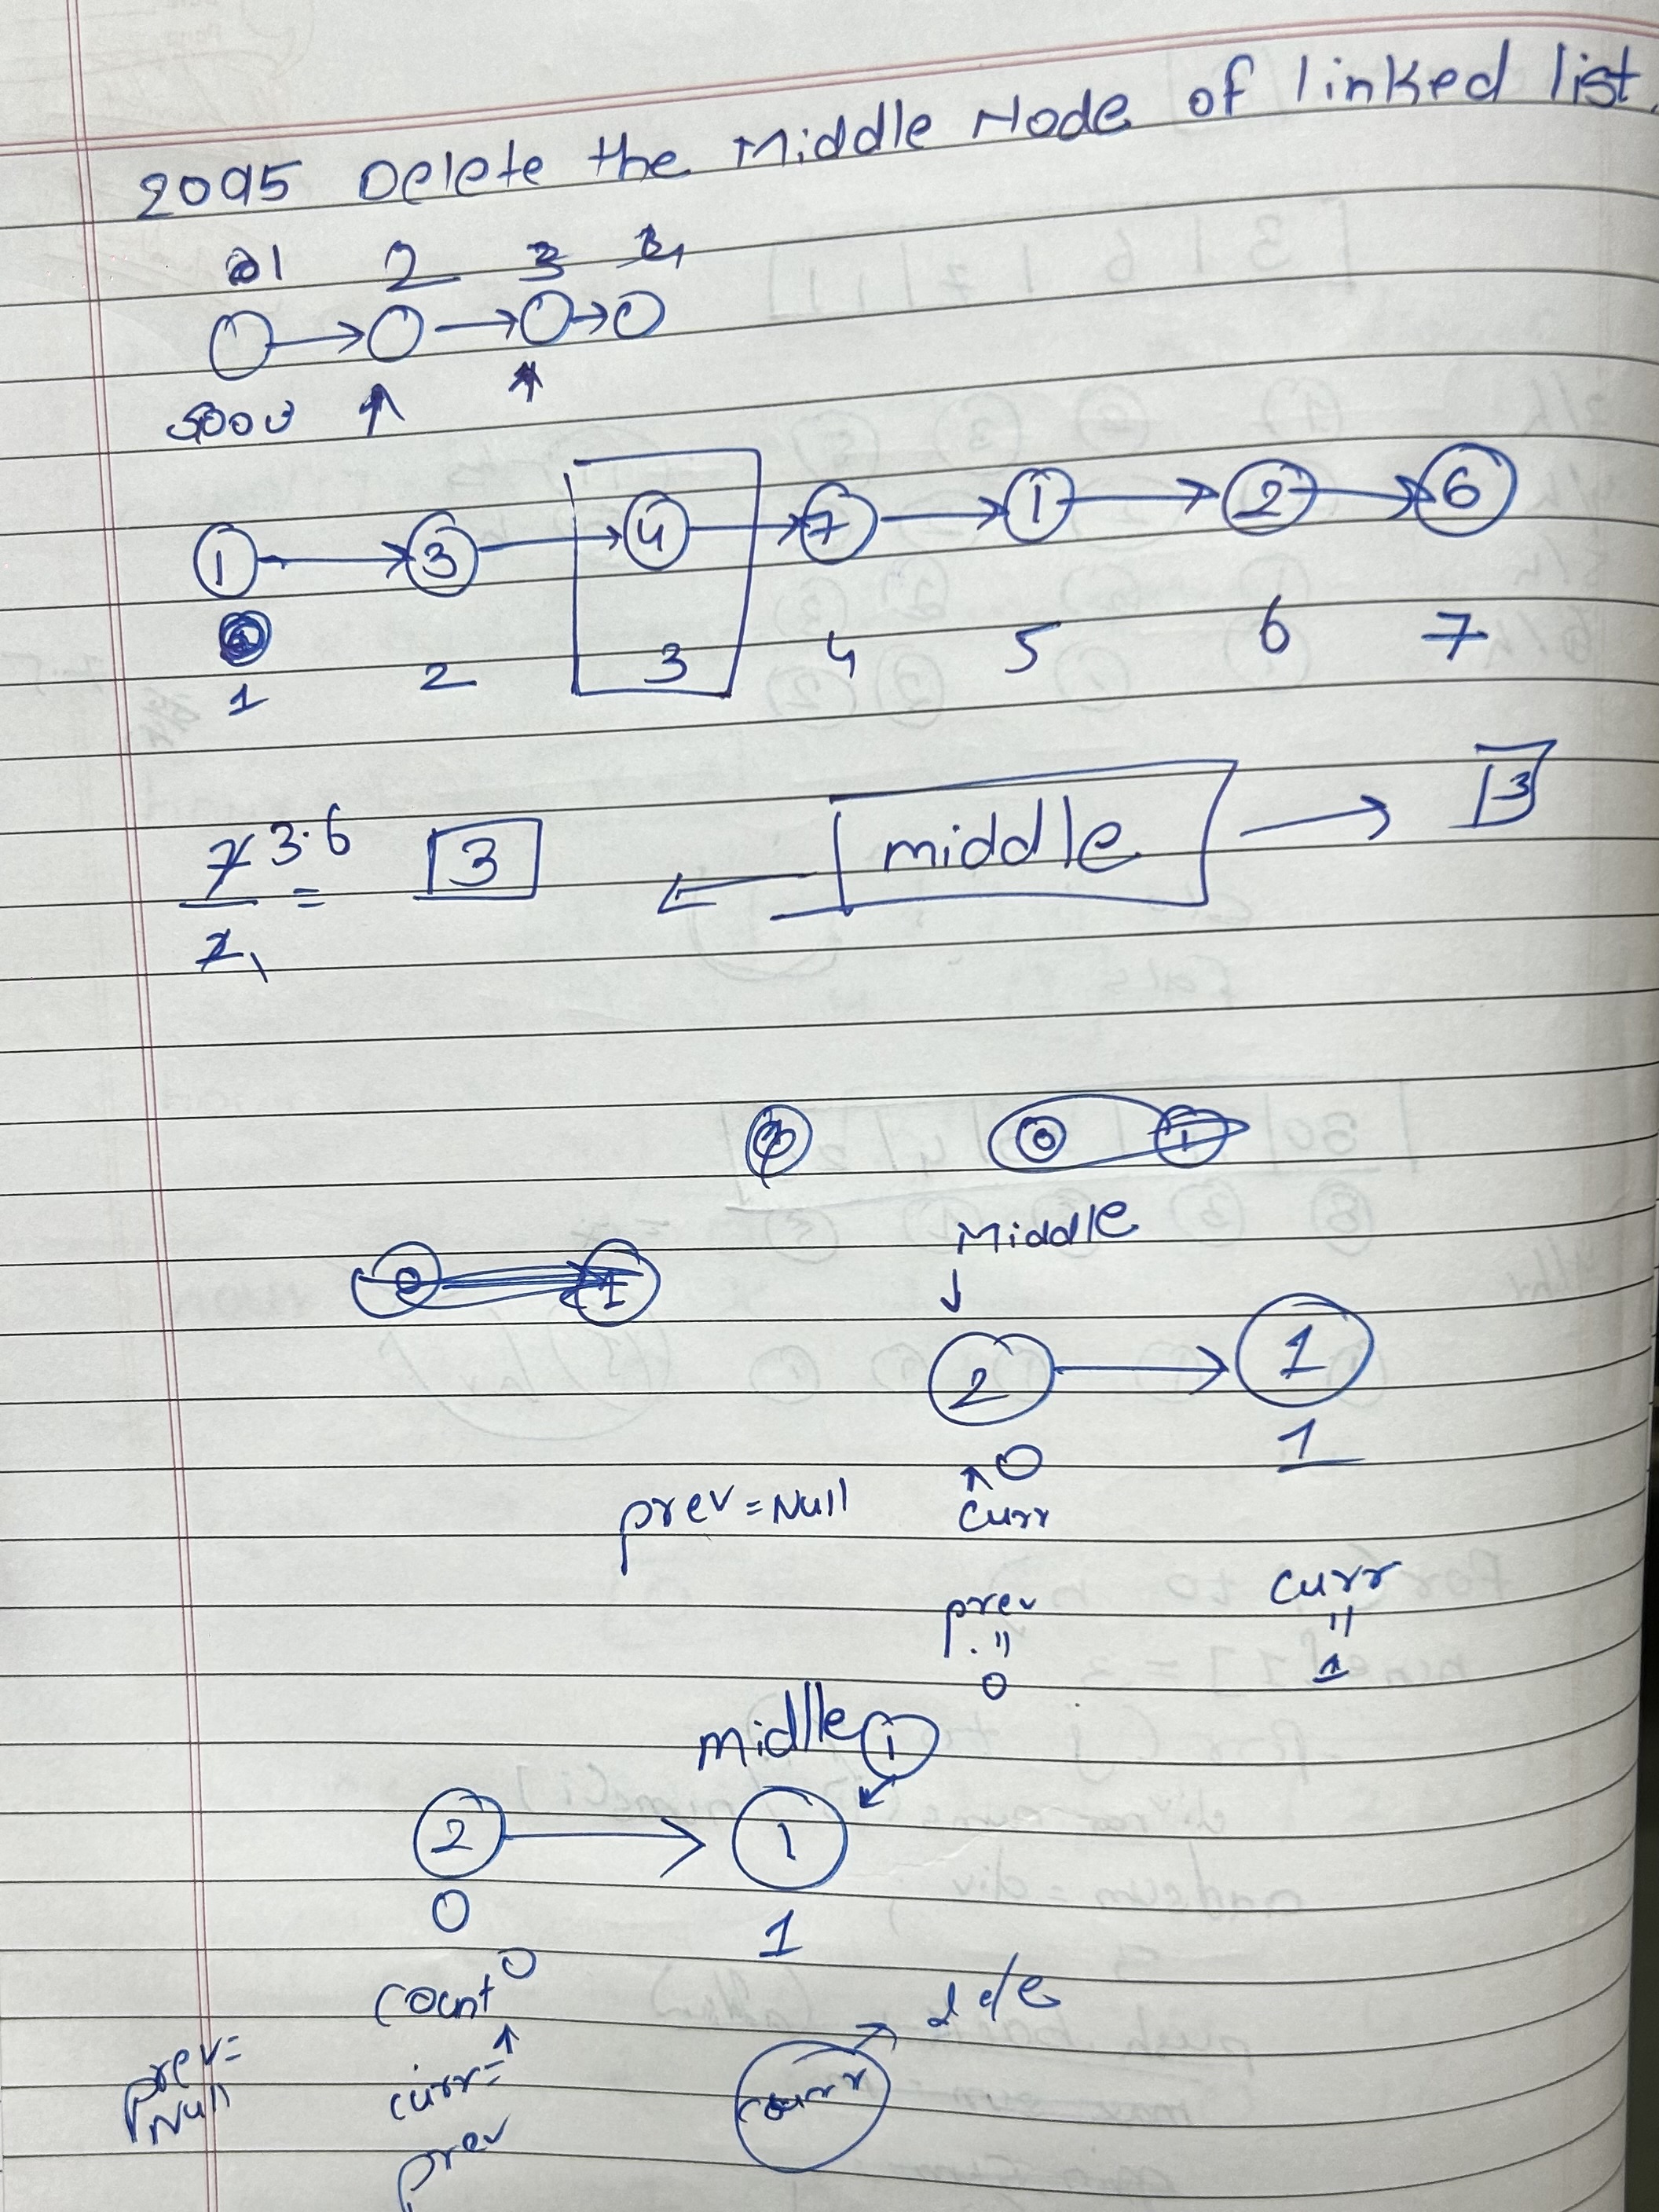 2095 Delete the Middle Node of linked list.
1 2 3
1 3 4 7 1 2 6
1 2 3 4 5 6 7
7 3.6 = 3 middle 3
2
0 1
Middle
2 1
0 1
prev=Null curr
prev curr
0 1
midlle 1
2 1
0 1
count 0
prev= Null curr= curr
prev